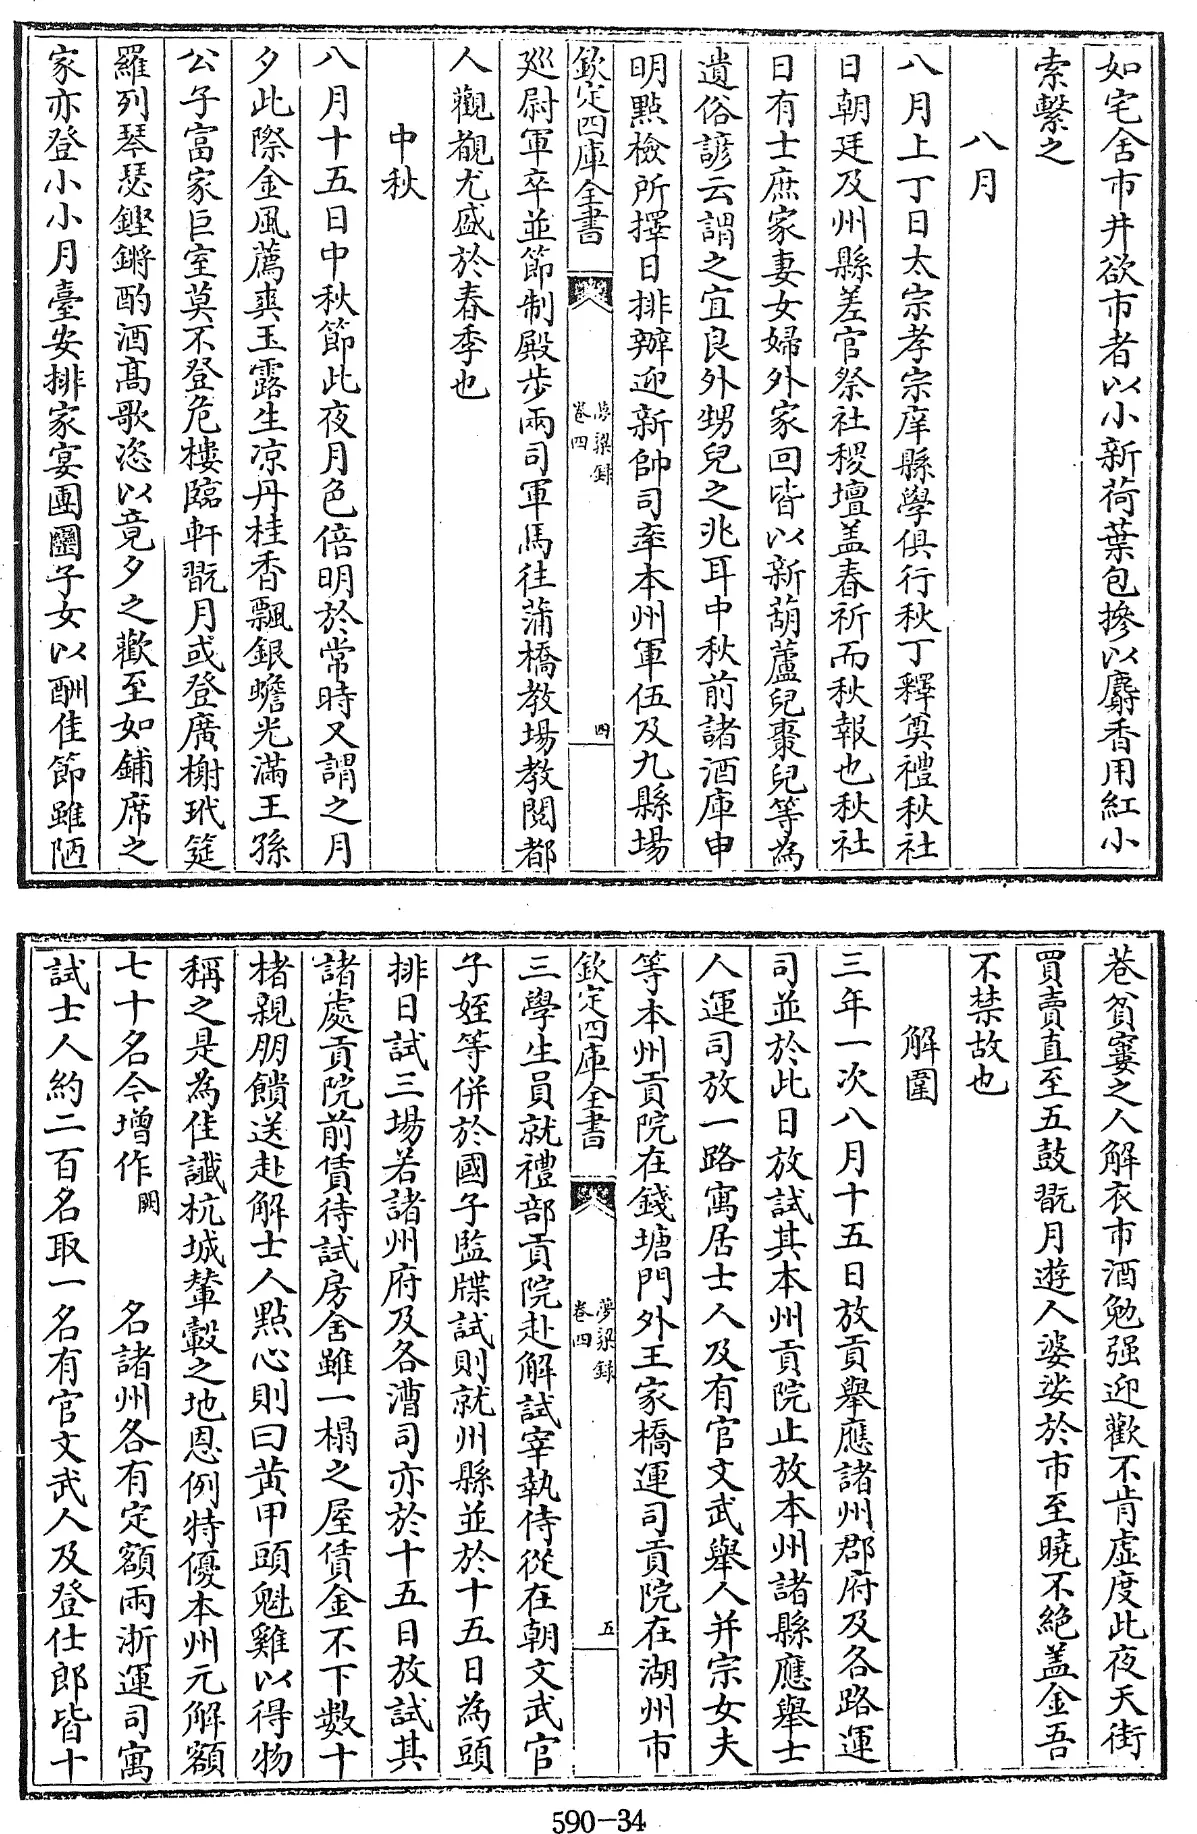 如宅舍市井欲市者以小新荷葉包摻以麝香用紅小
索繫之
八月
八月上丁日太宗孝宗庠縣學俱行秋丁釋奠禮秋社
日朝廷及州縣差官祭社稷壇盖春祈而秋報也秋社
日有士庶家妻女婦外家回皆以新葫蘆兒棗兒等為
遺俗諺云謂之宜良外甥兒之兆耳中秋前諸酒庫申
明點檢所擇日排辦迎新帥司率本州軍伍及九縣場
欽定四庫全書
夢粱録
卷四
四
廵尉軍卒並節制殿步兩司軍馬往蒲橋教場教閱都
人觀覩尤盛於春季也
中秋
八月十五日中秋節此夜月色倍明於常時又謂之月
夕此際金風薦爽玉露生凉丹桂香飄銀蟾光滿王孫
公子富家巨室莫不登危樓臨軒翫月或登廣榭玳筵
羅列琴瑟鏗鏘酌酒髙歌恣以竟夕之歡至如鋪席之
家亦登小小月臺安排家宴團圞子女以酬佳節雖陋
巷貧窶之人解衣市酒勉强迎歡不肯虛度此夜天街
買賣直至五鼓翫月遊人婆娑於市至曉不絶盖金吾
不禁故也
解圍
三年一次八月十五日放貢舉應諸州郡府及各路運
司並於此日放試其本州貢院止放本州諸縣應舉士
人運司放一路寓居士人及有官文武舉人并宗女夫
等本州貢院在錢塘門外王家橋運司貢院在湖州市
欽定四庫全書
夢粱録
卷四
五
三學生員就禮部貢院赴解試宰執侍從在朝文武官
子姪等併於國子監牒試則就州縣並於十五日為頭
排日試三場若諸州府及各漕司亦於十五日放試其
諸處貢院前賃待試房舍雖一榻之屋賃金不下數十
楮親朋饋送赴解士人點心則曰黄甲頭魁雞以得物
稱之是為佳讖杭城輦轂之地恩例特優本州元解額
七十名今增作闕名諸州各有定額兩浙運司寓
試士人約二百名取一名有官文武人及登仕郎皆十
590-34